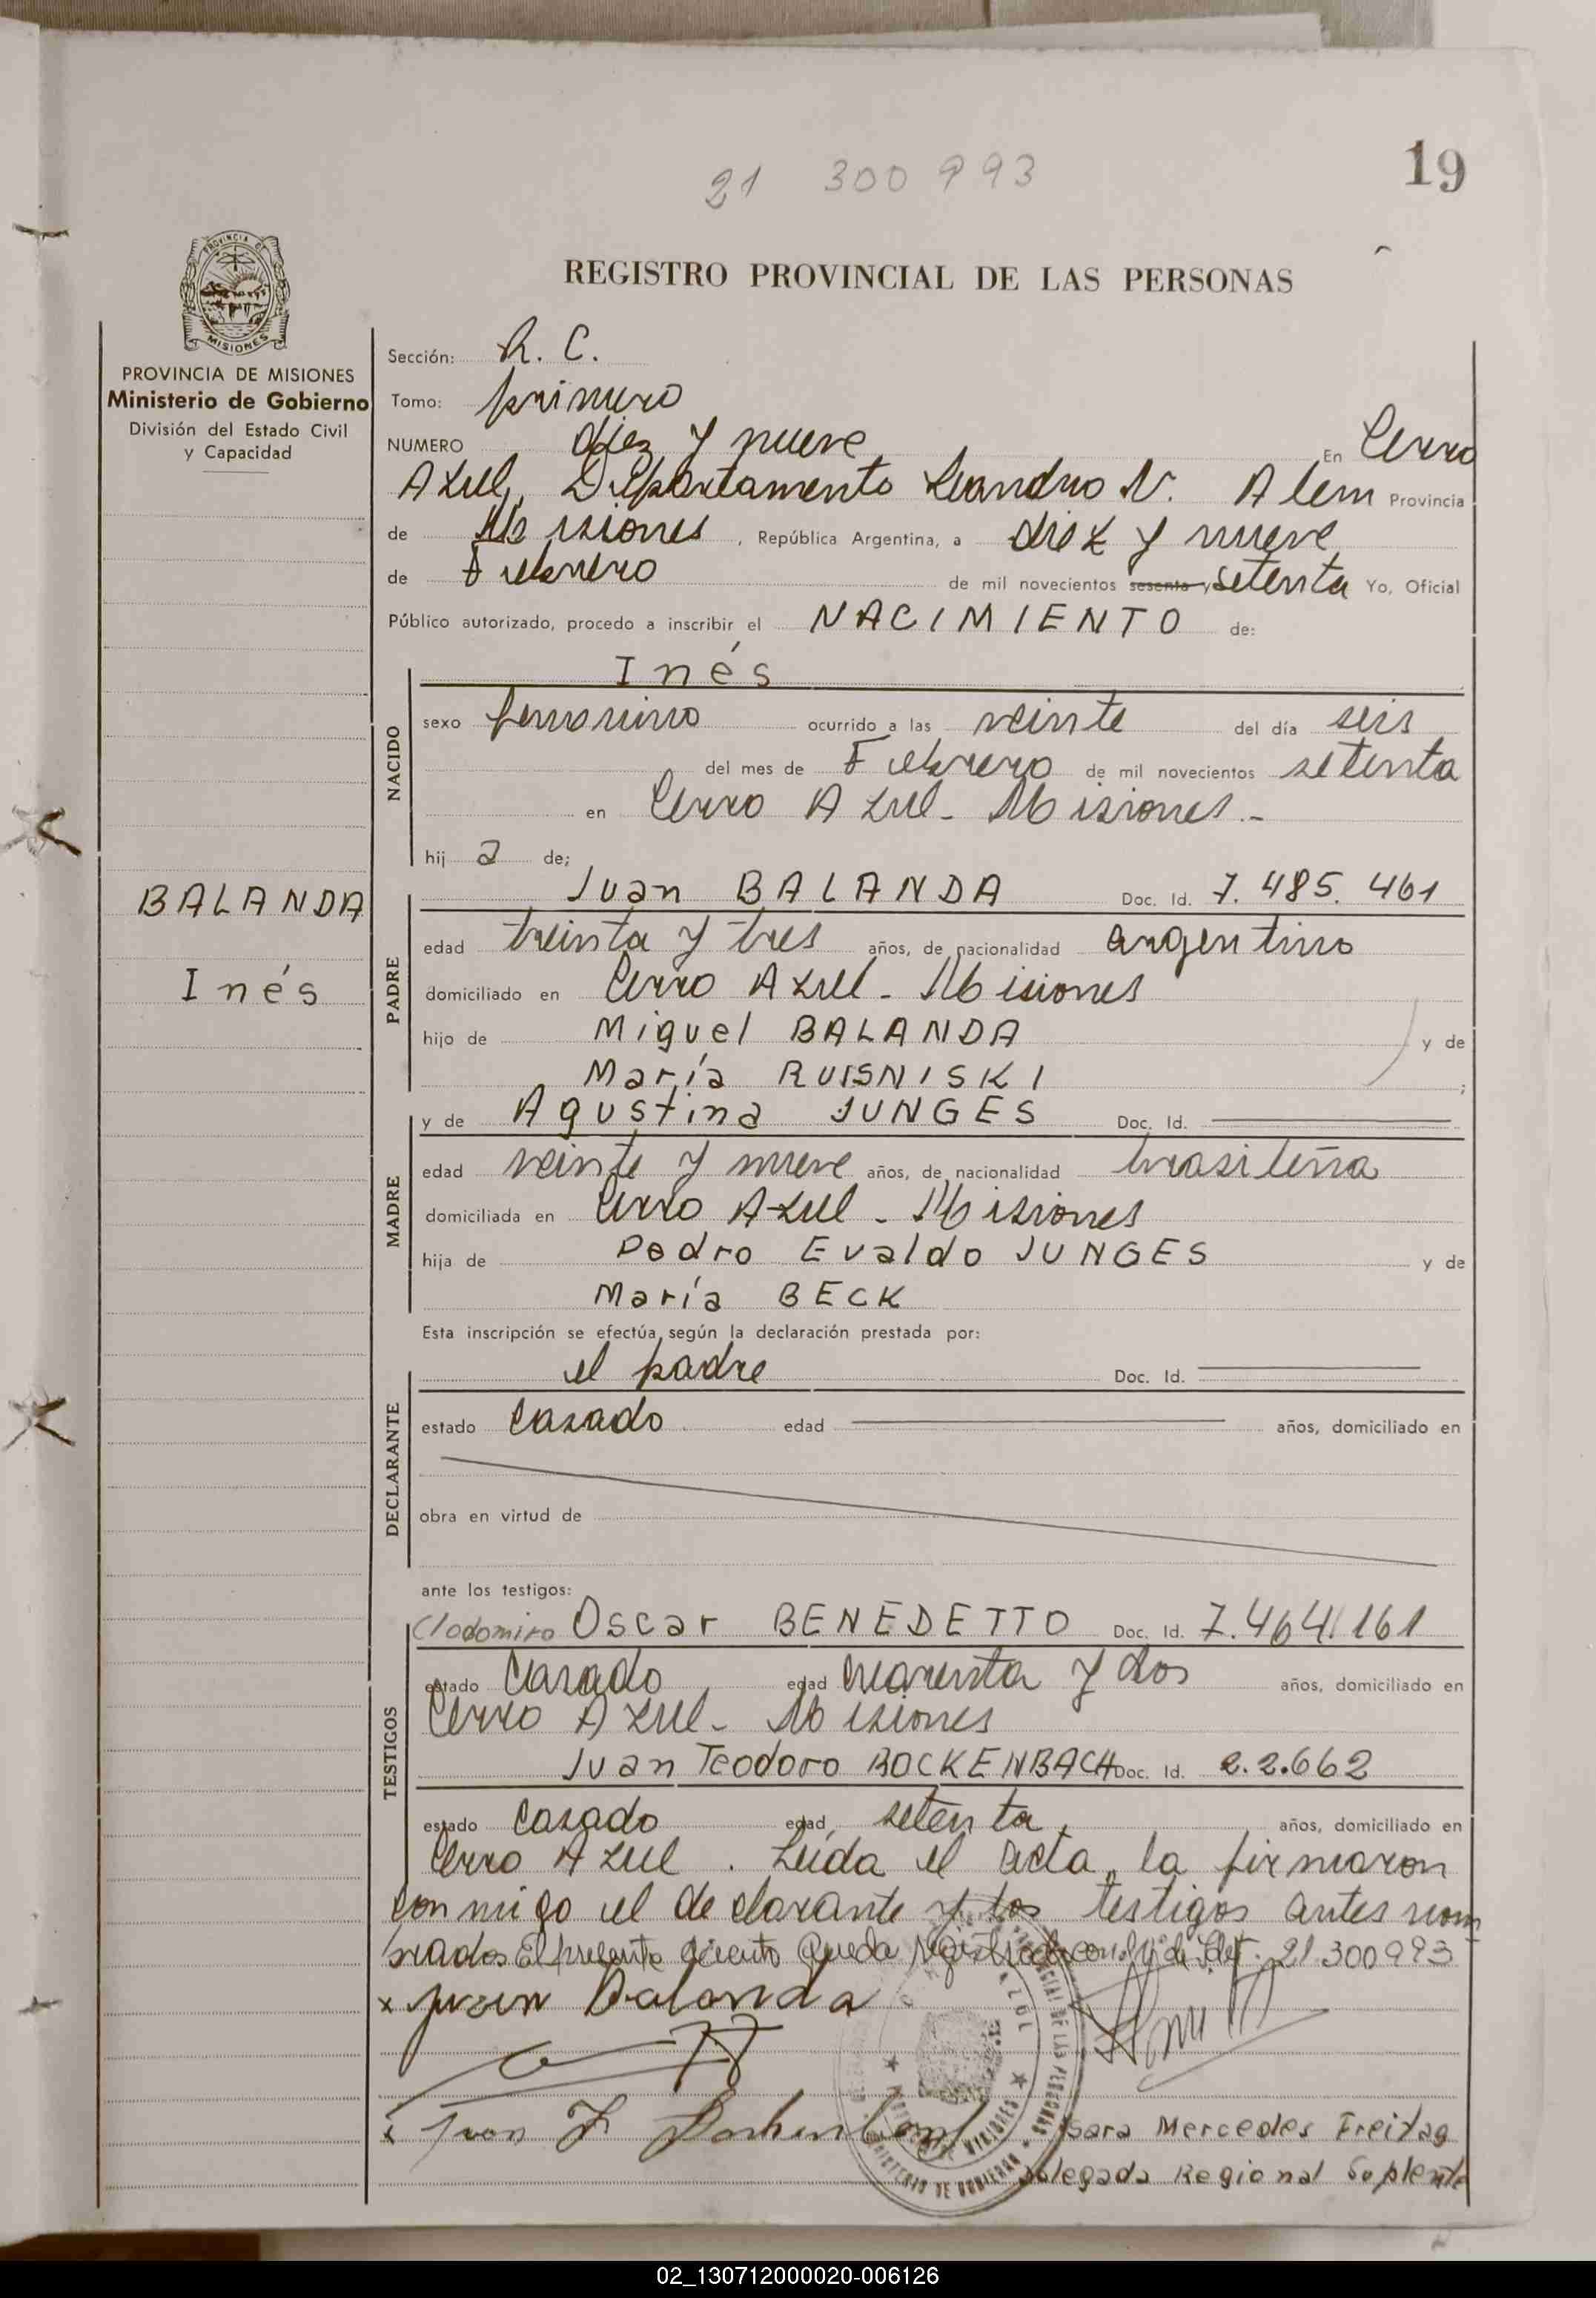 21 300 993
19
REGISTRO PROVINCIAL DE LAS PERSONAS
PROVINCIA DE MISIONES
MISIONES
PROVINCIA DE MISIONES
Ministerio de Gobierno
División del Estado Civil
y Capacidad
BALANDA
Inés
Sección: R. C.
Tomo: primero
NUMERO diez y nueve En Cerro
Azul, Departamento Leandro N. Alem Provincia
de Misiones, República Argentina, a diez y nueve
de Febrero de mil novecientos sesenta y setenta Yo, Oficial
Público autorizado, procedo a inscribir el NACIMIENTO de:
NACIDO
Inés
sexo femenino ocurrido a las veinte del día seis
del mes de Febrero de mil novecientos setenta
en Cerro Azul - Misiones.-
hij a de;
PADRE
Juan BALANDA Doc. Id. 7.485.461
edad treinta y tres años, de nacionalidad argentino
domiciliado en Cerro Azul - Misiones
hijo de Miguel BALANDA y de
María RUISNISKI ;
MADRE
y de Agustina JUNGES Doc. Id.
edad veinte y nueve años, de nacionalidad brasileña
domiciliada en Cerro Azul - Misiones
hija de Pedro Evaldo JUNGES y de
María BECK
Esta inscripción se efectúa según la declaración prestada por:
DECLARANTE
el padre Doc. Id.
estado Casado edad años, domiciliado en
obra en virtud de
ante los testigos:
TESTIGOS
Clodomiro Oscar BENEDETTO Doc. Id. 7.464.161
estado Casado edad cuarenta y dos años, domiciliado en
Cerro Azul - Misiones
Juan Teodoro BOCKENBACH Doc. Id. 2.2.662
estado Casado edad setenta, años, domiciliado en
Cerro Azul. Leida el acta, la firmaron
conmigo el declarante y los testigos antes nom
brados El presente queda registrado con 21.300993
x Juan Balanda
x Juan
Sara Mercedes Freitag
Delegada Regional Suplente
02_130712000020-006126